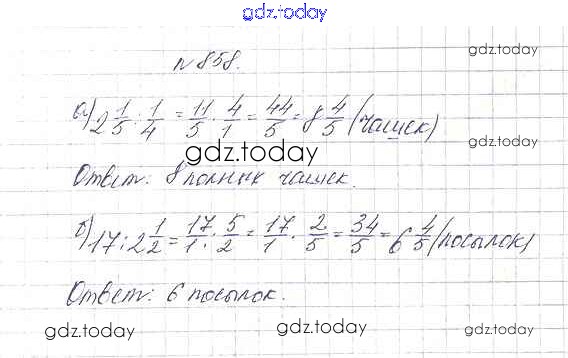 gdz.today
gdz.today
№ 858.
а) 2 1/5 : 1/4 = 11/5 · 4/1 = 44/5 = 8 4/5 (чашек)
gdz.today
Ответ: 8 полных чашек.
б) 17 : 2 1/2 = 17/1 : 5/2 = 17/1 · 2/5 = 34/5 = 6 4/5 (посылок)
Ответ: 6 посылок.
gdz.today gdz.today gdz.today